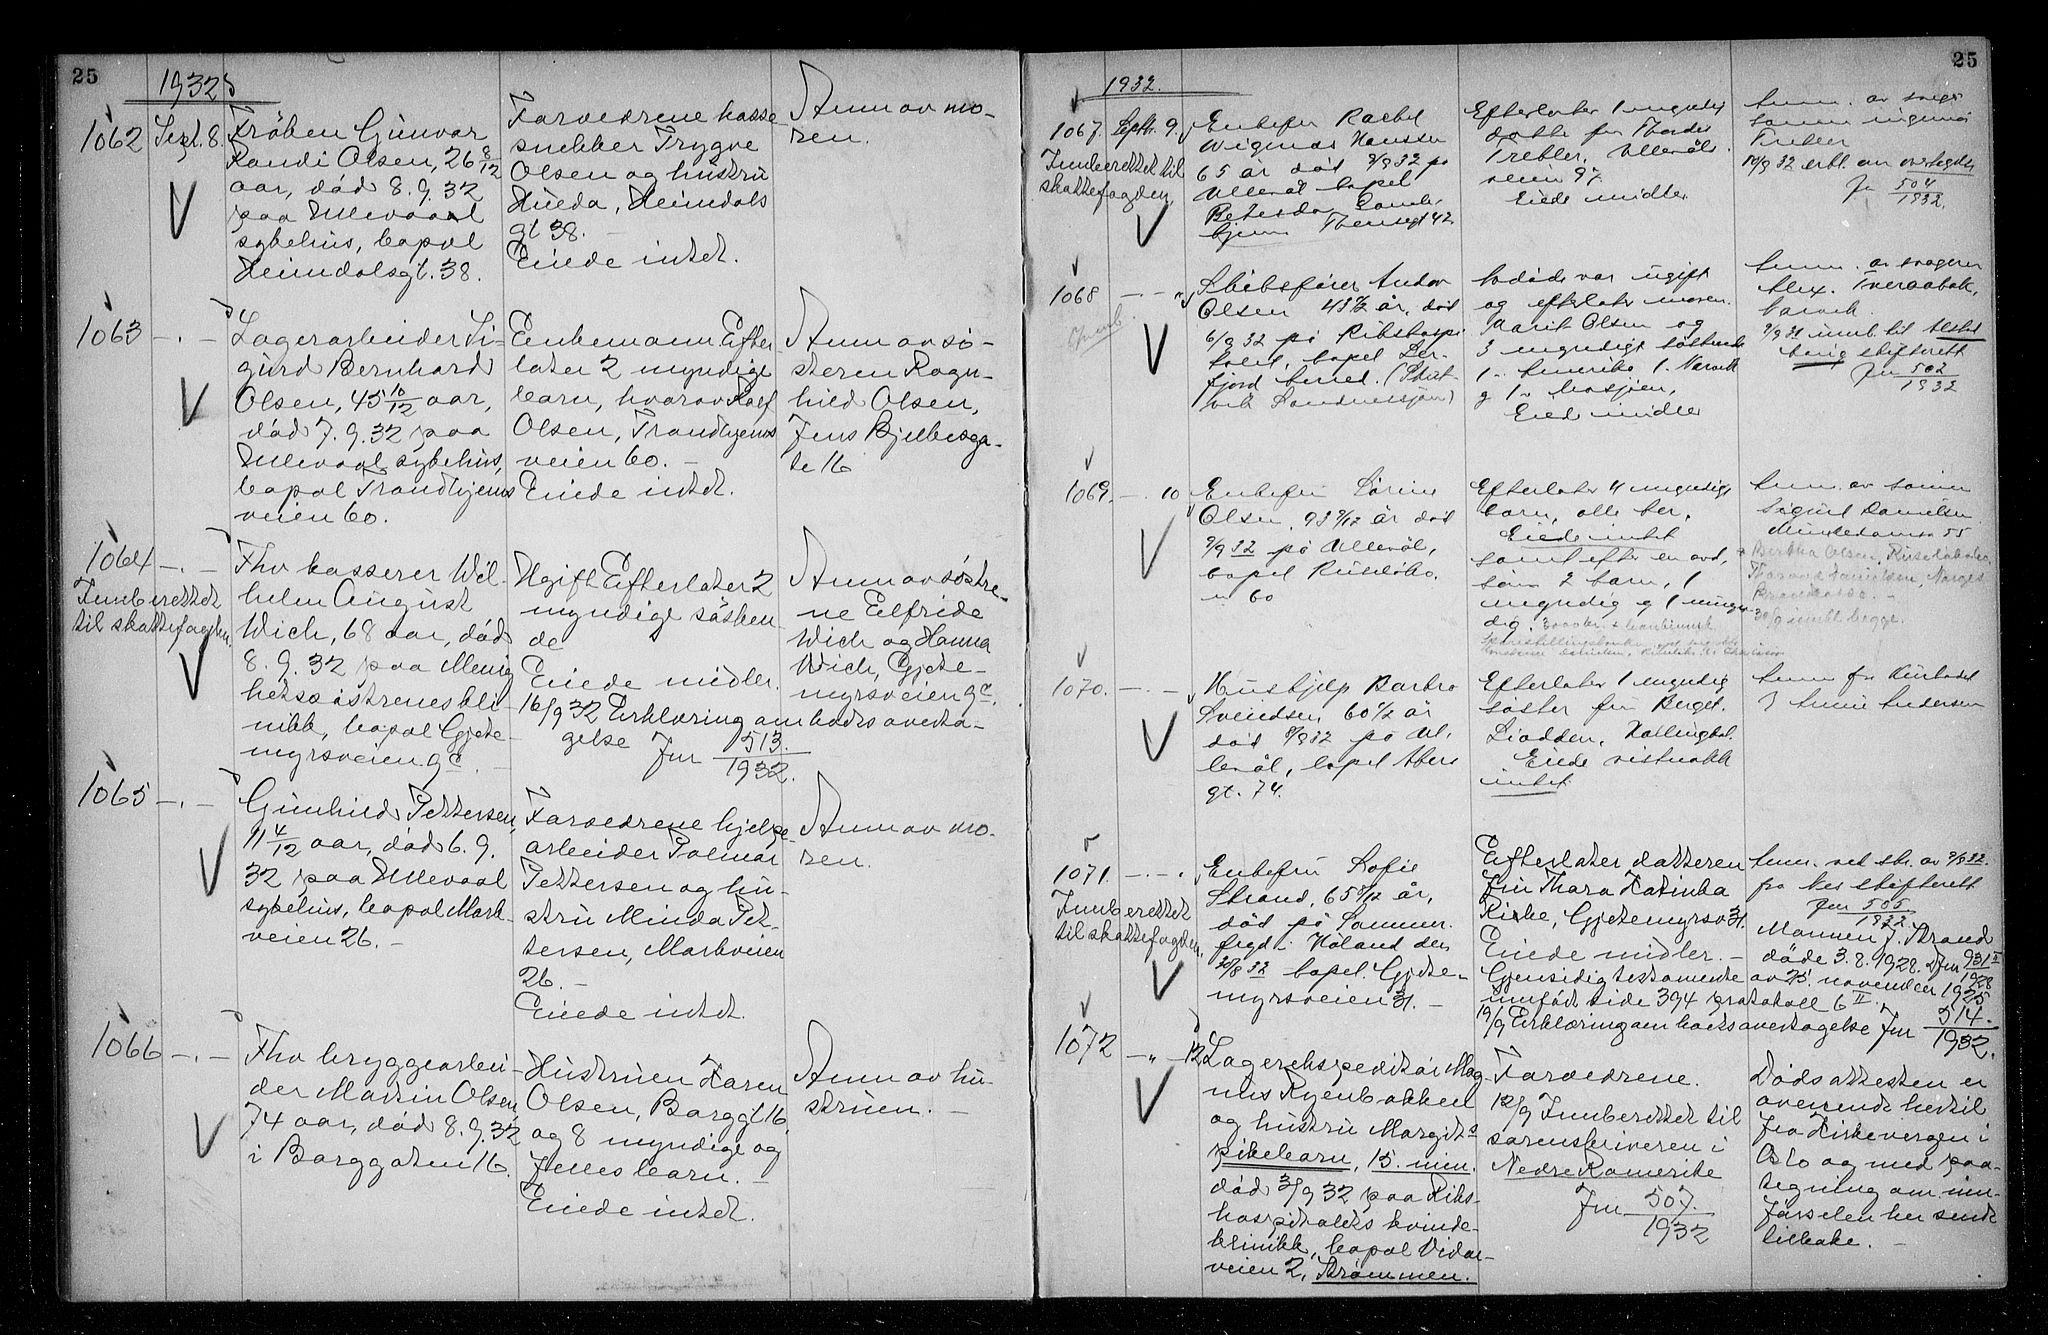 25
1932
1062
Sept. 8.
Frøken Gunvor
Randi Olsen, 26 8/12
aar, død 8.9.32
paa Ullevaal
sykehus, bopæl
Heimdalsgt. 38.
Forældrene kasse-
snekker Trygve
Olsen og hustru
Hulda, Heimdals
gt 38. -
Eiede intet.
Anm av mo-
ren.
1063
Lagerarbeider Si-
gurd Bernhard
Olsen, 45 10/12 aar,
død 7.9.32 paa
Ullevaal sykehus,
bopæl Trondhjems
veien 60.
Enkemann Efter
later 2 myndige
barn, hvorav Rolf
Olsen, Trondhjems
veien 60. -
Eiede intet.
Anm av sø-
steren Ragn-
hild Olsen,
Jens Bjelkesga-
te 16
1064
Innberettet
til skattefogden.
Fhv kasserer Wil-
helm August
Wich, 68 aar, død
8.9.32 paa Menig
hetssøstrenes kli-
nikk, bopæl Gjete-
myrsveien 9c. -
Ugift Efterlater 2
myndige søsken
de
Eiede midler.
16/9 32 Erklæring om boets overta-
gelse Jnr 513.
1932.
Anm av søstre-
ne Elfride
Wich og Hanna
Wich, Gjete-
myrsveien 9c.
1065
Gunhild Pettersen,
11 4/12 aar, død 6.9.
32 paa Ullevaal
sykehus, bopæl Mark-
veien 26. -
Forældrene hjelpe-
arbeider Polmar
Pettersen og hu-
stru Minda Pet-
tersen, Markveien
26. -
Eiede intet.
Anm av mo-
ren.
1066
Fhv bryggearbei-
der Martin Olsen
74 aar, død 8.9.32
i Borggaten 16.
Hustruen Karen
Olsen, Borggt 16.
og 8 myndige og
felles barn. -
Eiede intet.
Anm av hu-
struen. -
25
1932.
1067.
Septbr. 9.
Innberettet til
skattefogden.
Enkefru Rachel
Hanssen
65 år død 8/9 32 på
Ullevål bopel
Betesda
hjem Theresegt 42
Efterlater 1 myndig
datter fru Thordis
Trebler, Ullevåls-
veien 97.
Eiede midler
Anm. av sviger
sønnen ingeniør
Trebler
10/9 32 erkl. om overtagelse
Jnr 504
1932.
1068
Skibsfører Anton
Olsen 43 1/2 år, død
6/9 32 på Rikshospi
talet, bopel Ler-
fjord
Sandnessjøen)
Avdøde var ugift
og efterlater moren
Marit Olsen og
3 myndige søskende
1 i Amerika 1 i Narvik
og 1 i Mosjøen,
Eiede midler
Anm. av svogeren
Alex. Tveraabak,
Narvik.
9/9 32 innb. til Alstad-
haug skifterett
Jnr 502
1932
1069.
10
Enkefru Sørine
Olsen, 93 9/12 år død
9/9 32 på Ullevål,
bopel Russeløkv.
60
Efterlater 4 myndige
barn, alle her.
Eiede intet
samt efter en avd.
sønn 2 barn, 1
myndig og 1 umyn-
dig.
Anm. av sønnen
Sigurd Danielsen
Munkedamsv 55
30/9 innkt begge.
1070.
Hushjelp Barbro
Sveindsen 60 1/2 år
død 8/9 32 på Ul-
levål, bopel Akers
gt. 74.
Efterlater 1 myndig
søster fru Berget
Liodden, Hallingdal.
Eiede vistnokk
intet.
Anm fra
Annie Andersen
1071.
Innberettet
til skattefogden.
Enkefru Sofie
Strand, 65 5/12 år,
død på Sommer-
frgd i Høland den
20/8 32 bopel Gjete-
myrsveien 31. -
Efterlater datteren
fru Thora Katinka
Kirke, Gjetemyrsv 31.
Eiede midler. -
Gjensidig testamente av 25. november 1925
innført side 394 protokoll 6 II.
19/9 Erklæring om boets overtagelse Jnr 514.
1932.
Anm. ved skr. av 9/9 32.
fra Nes skifterett
Jnr 505
1932
Mannen J. Strand
døde 3.8.1928. Jnr 931 II
1928
1072
12.
Lagerekspeditør Mag-
nus Ryenbakken
og hustru Margits
pikebarn, 15 min.
død 3/9 32 paa Riks-
hospitalets kvinde-
klinikk, bopæl Vidar-
veien 2, Strømmen.
Forældrene.
12/9 Innberettet til
sorenskriveren i
Nedre Romerike
Jnr 507.
1932
Dødsattesten er
oversendt hertil
fra Kirkevergen i
Oslo og med paa-
tegning om inn-
førselen her sendt
tilbake. -